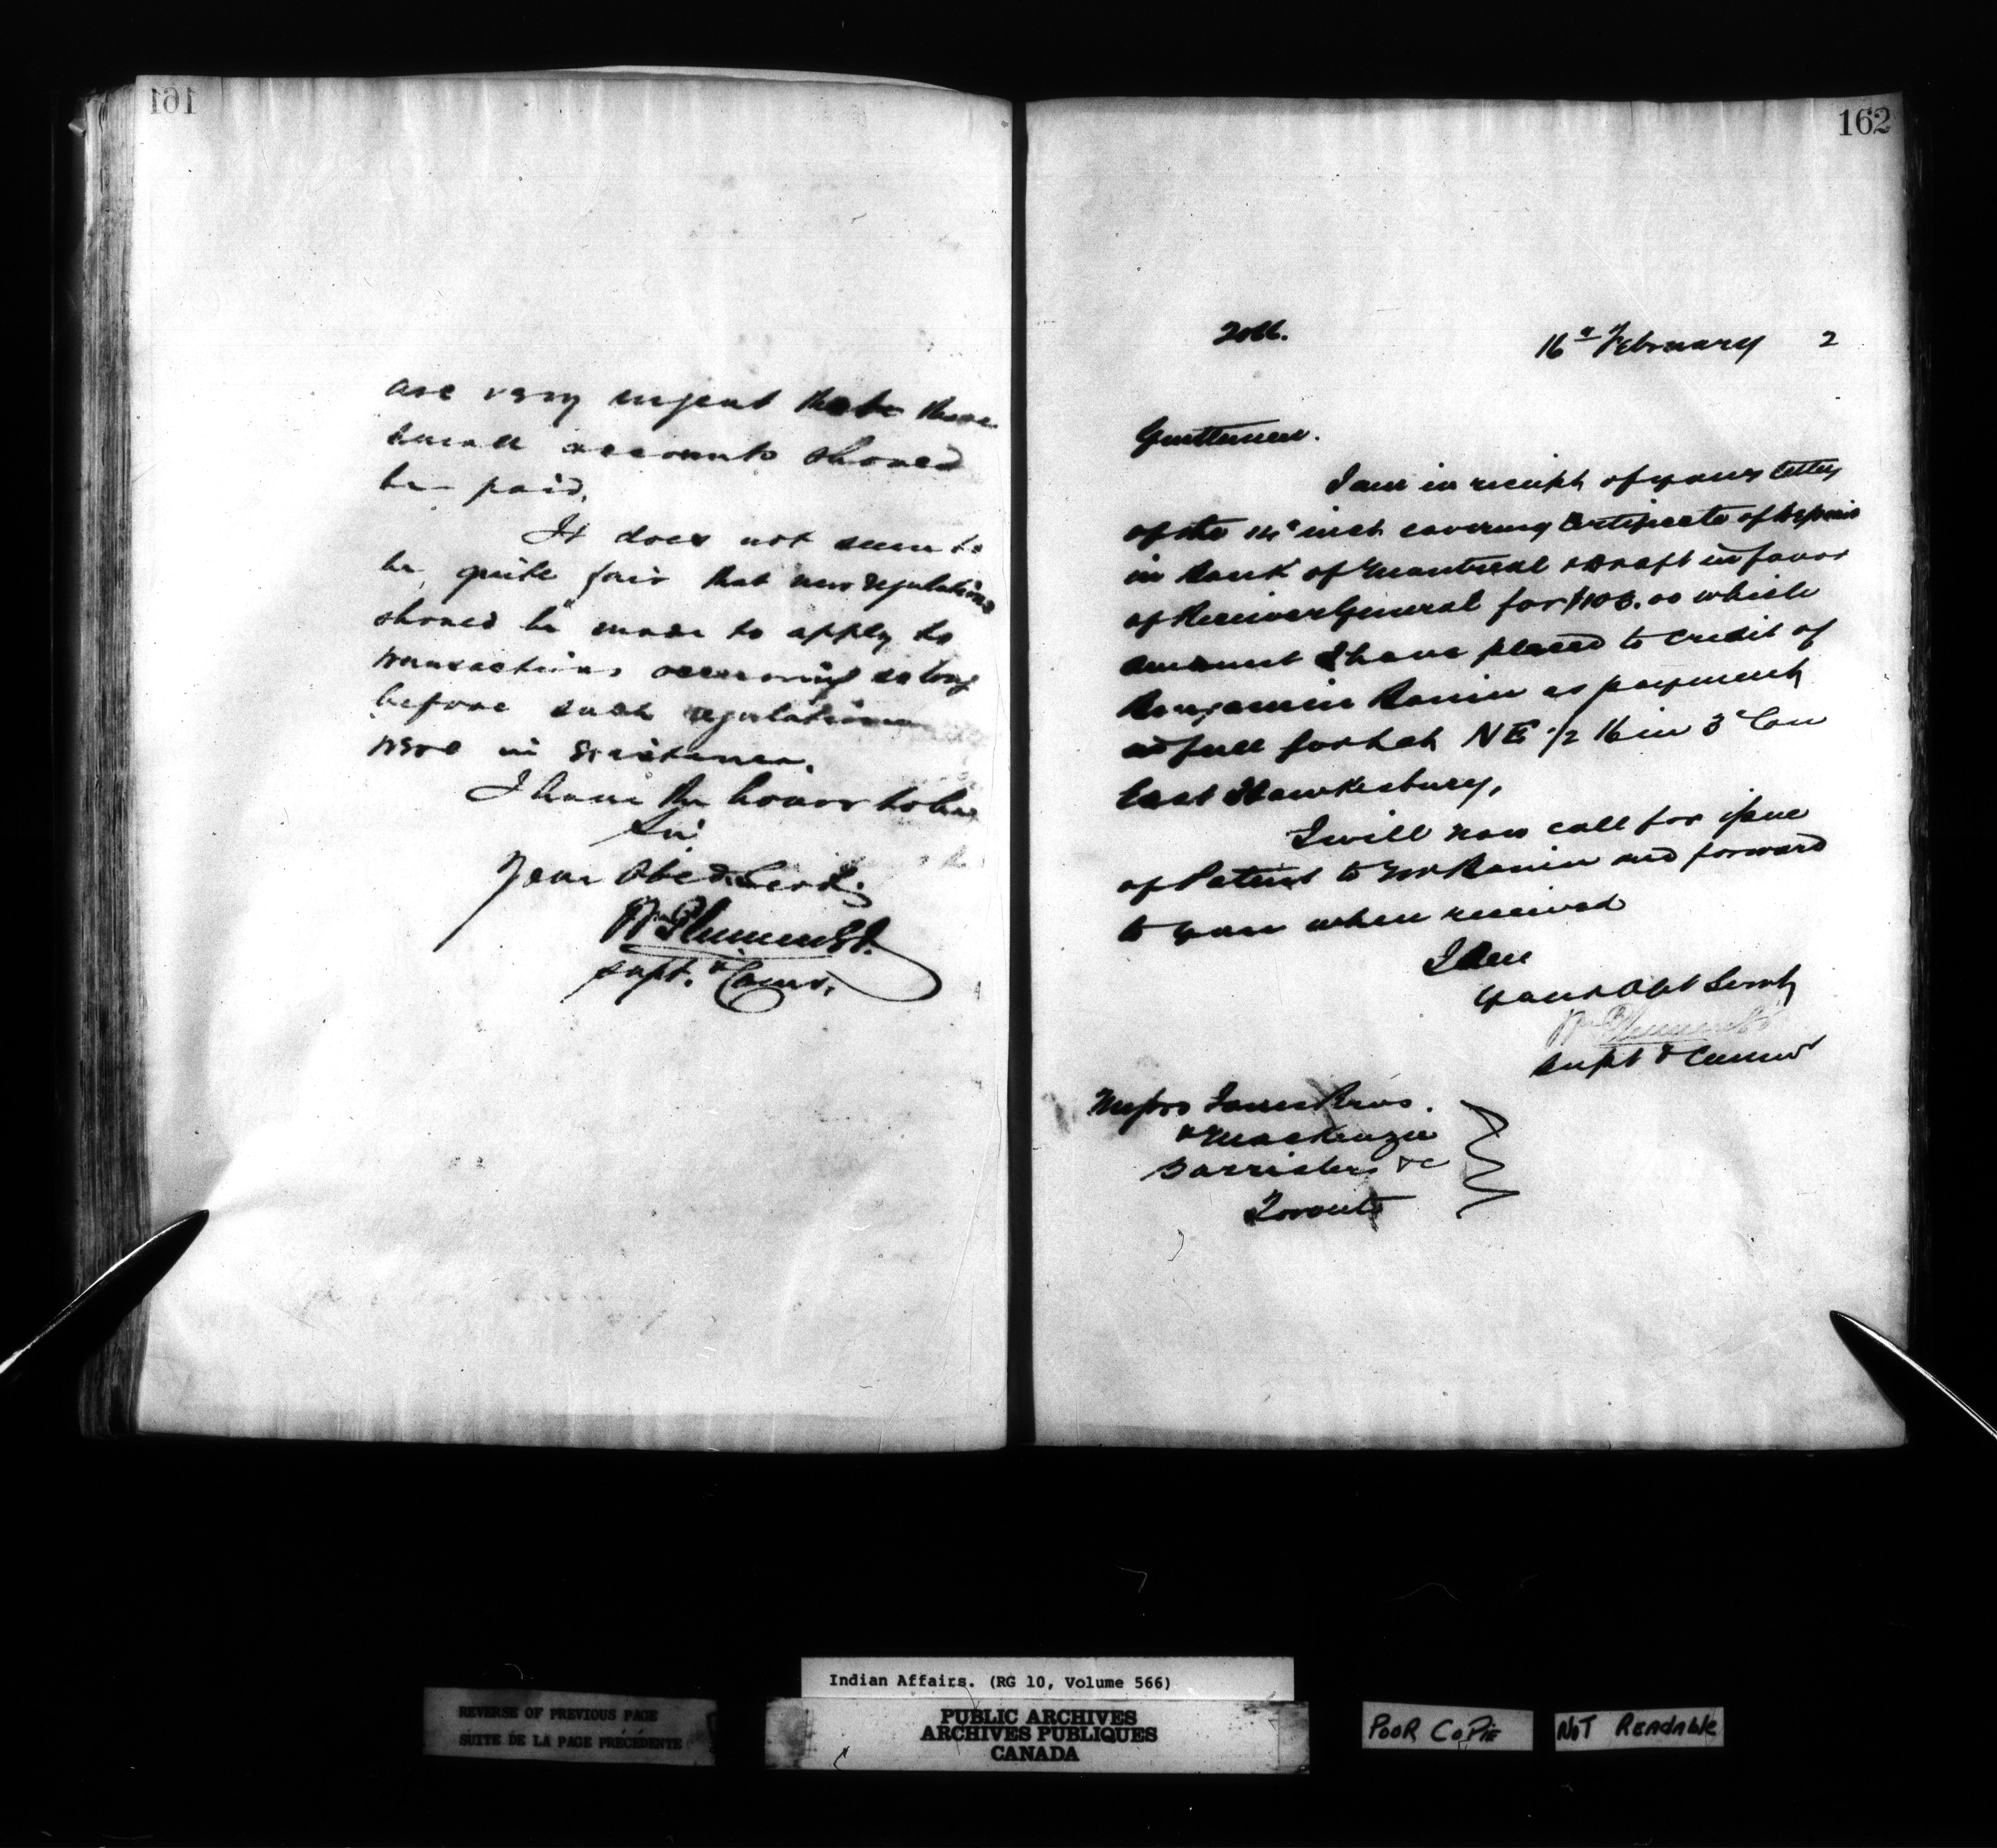 161
are very urgent that these
small accounts should
be paid.
It does not seem to
be quite fair that new regulations
should be made to apply to
transactions occurring so long
before such regulations
were in existence.
I have the honor to be
Sir
Your Obed. Servt.
Wm Plummer
Supt. & Comr.
162
2066.
16th February 2
Gentlemen.
I am in receipt of your letter
of the 14th inst. covering Certificate of Deposit
in Bank of Montreal & Draft in favor
of Receiver General for $108.00 which
amount I have placed to credit of
Benjamin as payment
in full for Lot NE 1/2 16 in 3d Con
East Hawkesbury,
I will now call for issue
of Patent to Mr and forward
to you when received
I am
Your Obt Servt
Wm Plummer
Supt & Commr
Messrs Bros.
& Mackenzie
Barristers &c
Toronto
REVERSE OF PREVIOUS PAGE
SUITE DE LA PAGE PRÉCÉDENTE
Indian Affairs. (RG 10, Volume 566)
PUBLIC ARCHIVES
ARCHIVES PUBLIQUES
CANADA
POOR COPIE
NOT READABLE